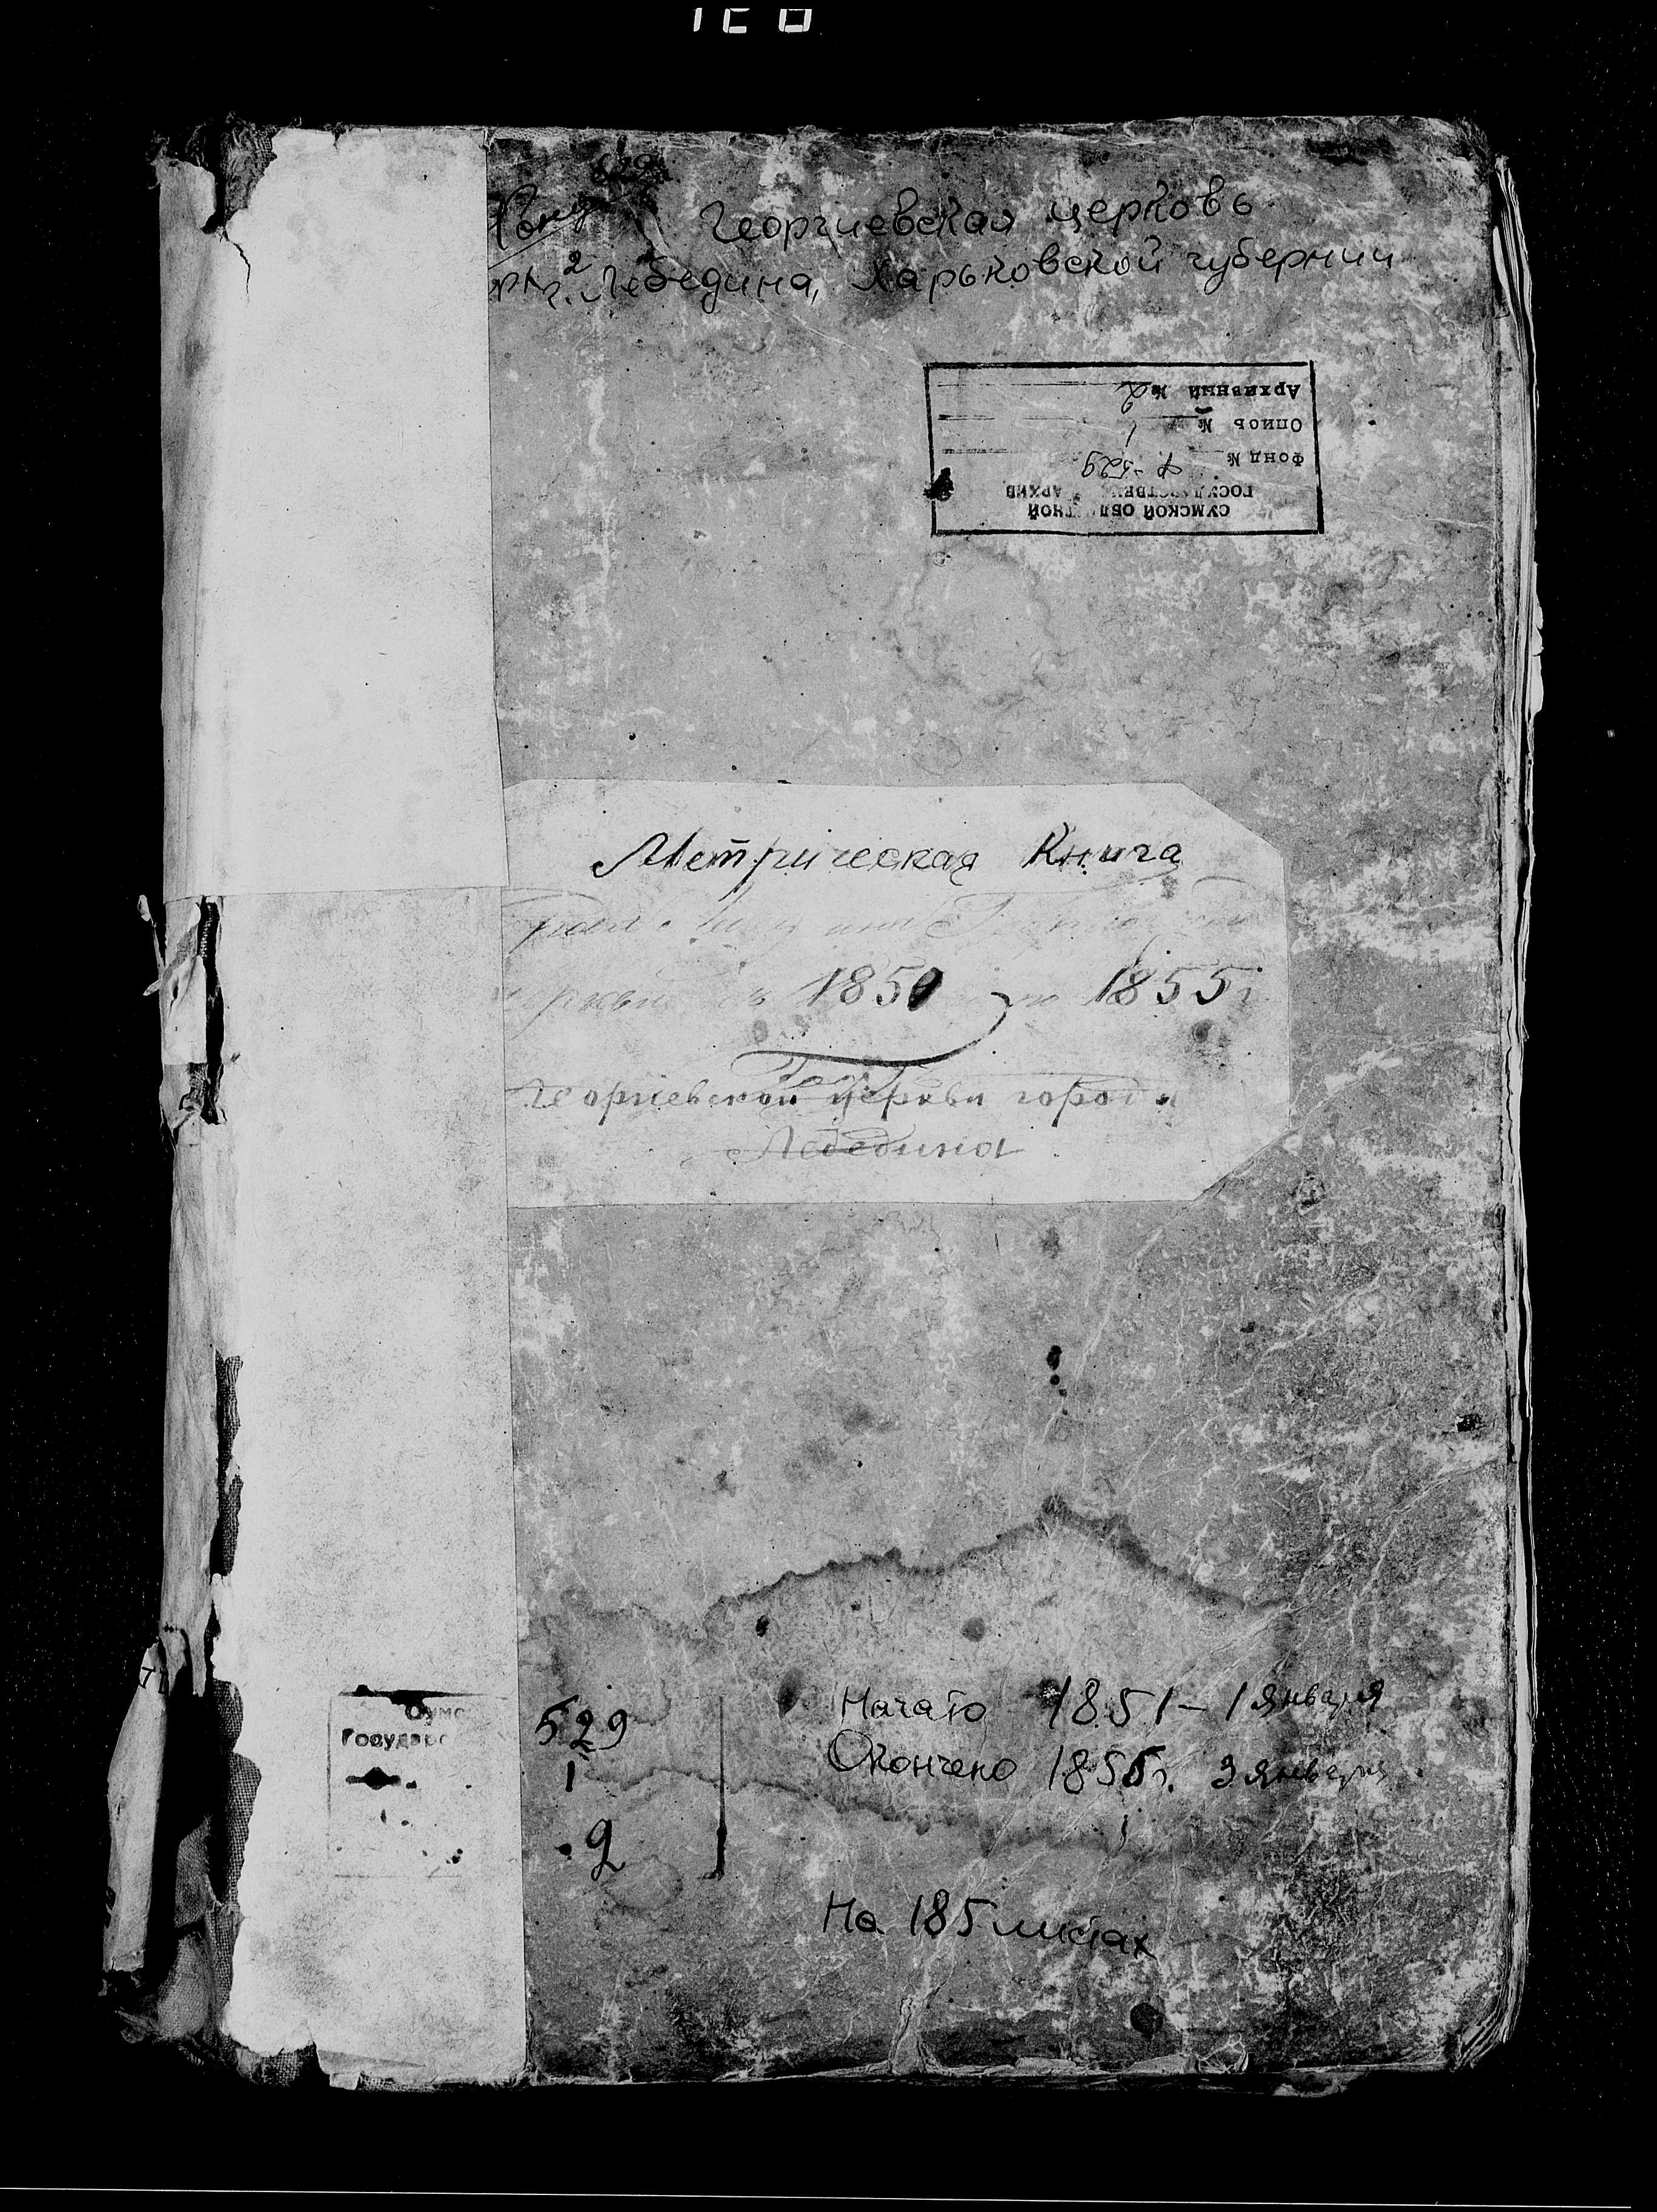 Георгиевская церковь
г. Лебедина, Харьковской губернии
СУМСКОЙ ОБЛ ТНОЙ
ГОСУДАРСТВЕН АРХИВ
Фонд № Ф-529
Опись № 1
Архивный № 2
Метрическая Книга
1851 1855 г
Георгіевской церкви города
Лебедина
Сумс
Государс
529
1
2
Начато 1851 – 1 января
Окончено 1855 г. 3 января
На 185 листах